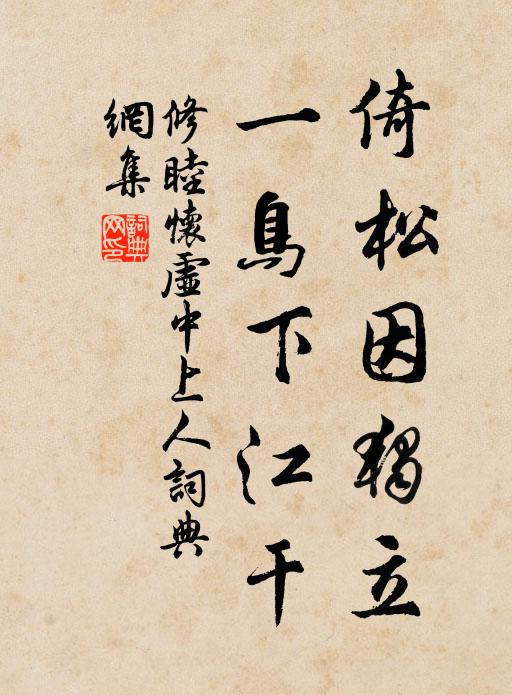 倚松因獨立
一鳥下江干
修睦懷虛中上人詞典
網集
詞典網印